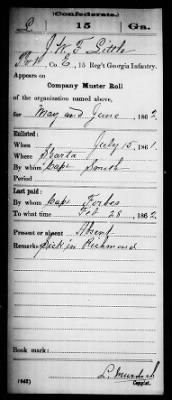 (Confederate.)
L 15 Ga.
J. W. F. Little
Pvt, Co. E, 15 Reg't Georgia Infantry.
Appears on
Company Muster Roll
of the organization named above,
for May and June, 1862.
Enlisted:
When July 15, 1861.
Where Sparta
By whom Capt Smith
Period
Last paid:
By whom Capt Forbes
To what time Feb 28, 1862.
Present or absent Absent
Remarks: Sick in Richmond
Book mark:
(642) L. Murdoch
Copyist.